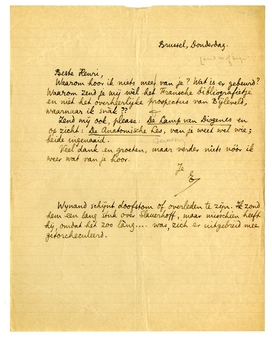 Brussel, Donderdag.
Beste Henri,
Waarom hoor ik niets meer van je? Wat is er gebeurd?
Waarom zend je mij wèl het Fransche bibliografietje
en niet het overheerlijke prospectus van Dijleveld,
waarnaar ik snak??
Zend mij ook, please: De Lamp van Diogenes en
op zicht: De Anatomische Les, van je weet wel wie;
beide ingenaaid.
Veel dank en groeten, maar verder niets vóór ik
weer wat van je hoor.
Je
E
Wijnand schijnt doofstom of overleden te zijn. Ik zond
hem een lang stuk over Slauerhoff, maar misschien heeft
hij, omdat het zoo lang.... was, zich er uitgebreid mee
getorcheculeerd.